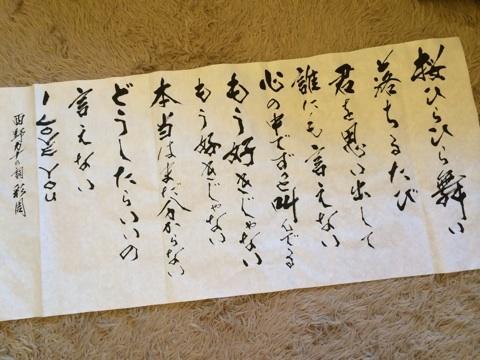 桜ひらひら舞い
落ちるたび
君を思い出して
誰にも言えない
心の中でずっと叫んでる
もう好きじゃない
もう好きじゃない
本当はまだ分からない
どうしたらいいの
言えない
西野カナの詞